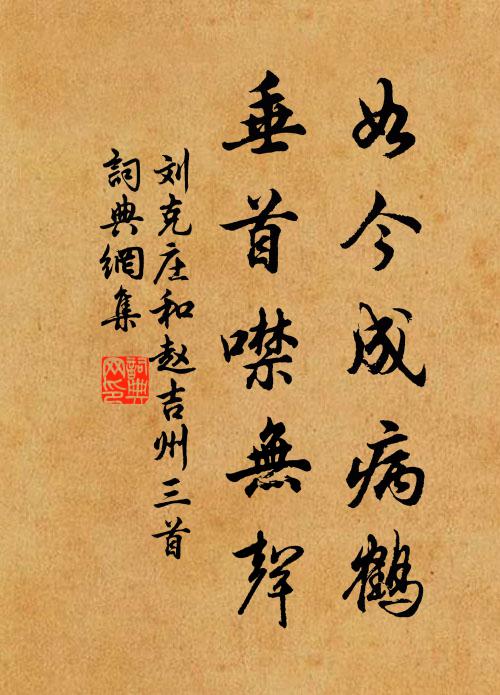 如今成病鶴
垂首噤無聲
刘克庄和赵吉州三首
詞典網集
詞典网印